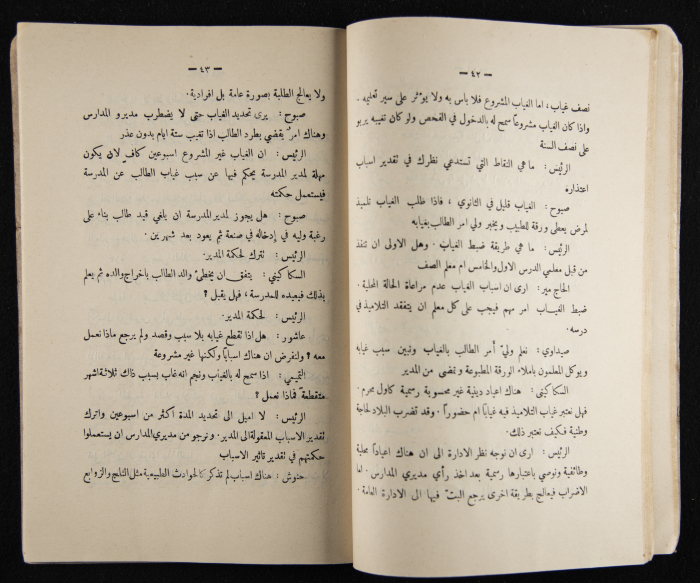 — ٤٢ —
نصف غياب، اما الغياب المشروع فلا باس به ولا يؤثر على سير تعليمه .
واذا كان الغياب مشروعاً سمح له بالدخول في الفحص ولو كان تغيبه يربو
على نصف السنة
الرئيس : ما هي النقاط التي تستدعي نظرك في تقدير اسباب
اعتذاره
صبوح : الغياب قليل في الثانوي ، فاذا طلب الغياب تلميذ
لمرض يعطى ورقة للطبيب ويخبر ولي امر الطالب بغيابه
الرئيس : ما هي طريقة ضبط الغياب . وهل الاولى ان تنفذ
من قبل معلمي الدرس الاول والخامس ام معلم الصف
الحاج مير : ارى ان اسباب الغياب عدم مراعاة الحالة المحلية .
ضبط الغياب امر مهم فيجب على كل معلم ان يتفقد التلاميذ في
درسه .
صيداوي : نعلم وليّ أمر الطالب بالغياب ونبين سبب غيابه
ويوكل المعلمون باملاء الورقة المطبوعة وتمضى من المدير
السكاكيني : هناك اعياد دينية غير محسوبة رسمية كاول محرم .
فهل نعتبر غياب التلاميذ فيه غيابًا ام حضوراً . وقد تضرب البلاد لحاجة
وطنية فكيف نعتبر ذلك.
الرئيس : ارى ان نوجه نظر الادارة الى ان هناك اعيادًا محلية
وطائفية ونوصي باعتبارها رسمية بعد اخذ رأي مديري المدارس . اما
الاضراب فيعالج بطريقة اخرى يرجع البتّ فيها الى الادارة العامة .
— ٤٣ —
ولا يعالج الطلبة بصورة عامة بل افرادية .
صبوح : يرى تحديد الغياب حتى لا يضطرب مديرو المدارس
وهناك امرٌ يقضي بطرد الطالب اذا تغيب ستة ايام بدون عذر
الرئيس : ان الغياب غير المشروع اسبوعين كافٍ لان يكون
مهلة لمدير المدرسة يحكم فيها عن سبب غياب الطالب عن المدرسة
فيستعمل حكمته
صبوح : هل يجوز لمدير المدرسة ان يلغي قيد طالب بناء على
رغبة وليه في ادخاله في صنعة ثم يعود بعد شهرين .
الرئيس : نترك لحكمة المدير .
السكاكيني : يتفق ان يخطئ والد الطالب باخراج ولده ثم يعلم
بذلك فيعيده للمدرسة ، فهل يقبل ؟
الرئيس : لحكمة المدير .
عاشور : هل اذا تقطع غيابه بلا سبب وقصد ولم يرجع ماذا نعمل
معه ؟ ولنفرض ان هناك اسبابًا ولكنها غير مشروعة
التميمي : اذا سمح له بالغياب ونجم انه غاب بسبب ذاك ثلاثة اشهر
متقطعة فماذا نعمل ؟
الرئيس : لا اميل الى تحديد المدة اكثر من اسبوعين واترك
تقدير الاسباب المعقولة الى المدير . ونرجو من مديري المدارس ان يستعملوا
حكمتهم في تقدير تاثير الاسباب
حنوش : هناك اسباب لم تذكر كالحوادث الطبيعية مثل الثلج والزوابع